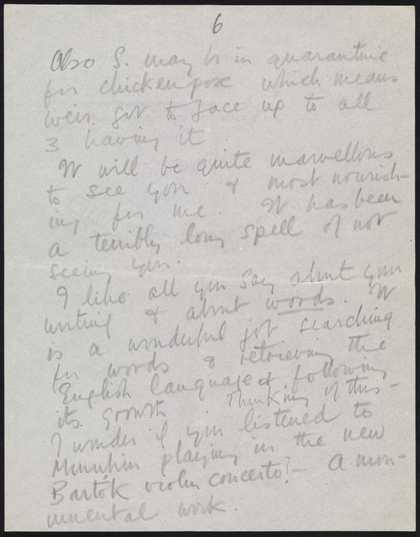 6
Also S. may be in quarantine
for chickenpox which means
we've got to face up to all
3 having it.
It will be quite marvellous
to see you & most nourish-
ing for me. It has been
a terribly long spell of not
seeing you.
I like all you say about your
writing & about words. It
is a wonderful job searching
for words & retrieving the
English language & following
its growth. Thinking of this -
I wonder if you listened to
Menuhin playing in the new
Bartók violin concerto? - A mon-
umental work.